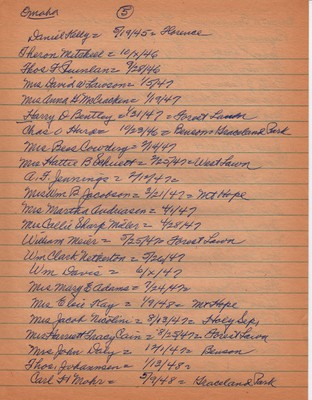 Omaha (5)
Daniel Kelly = 5/19/45 = Florence
Theron Mitchell = 10/x/46
Thos F. = 9/28/46
Mrs David W. Lawson = 1/5/47
Mrs Anna G. McCracken = 1/19/47
Harry D Bentley = 1/21/47 = Forest Lawn
Chas C. = 10/23/46 = Benson Graceland Park
Mrs Bess Cowdery = 2/4/47
Mrs Hattie B. = 2/25/47 = West Lawn
A. F. Jennings = 2/19/47 =
Mrs Wm B. Jacobson = 3/21/47 = Mt Hope
Mrs Martha Anderson = 4/1/47
Mrs Callie Sharp Miller = 4/28/47
William Meier = 5/25/47 = Forest Lawn
Wm Clark Netherton = 5/26/47
Wm Davis = 6/x/47
Mrs Mary E Adams = 7/24/47 =
Mrs Elsie Kay = 1/9/48 = Mt Hope
Mrs Jacob Nicolini = 8/13/47 = Holy Sep.
Mrs Harriett Tracy Cain = 8/25/47 = Forest Lawn
Mrs John Daly = 12/1/47 = Benson
Thos. Johannsen = 1/13/48 =
Carl H Mohr = 5/9/48 = Graceland Park